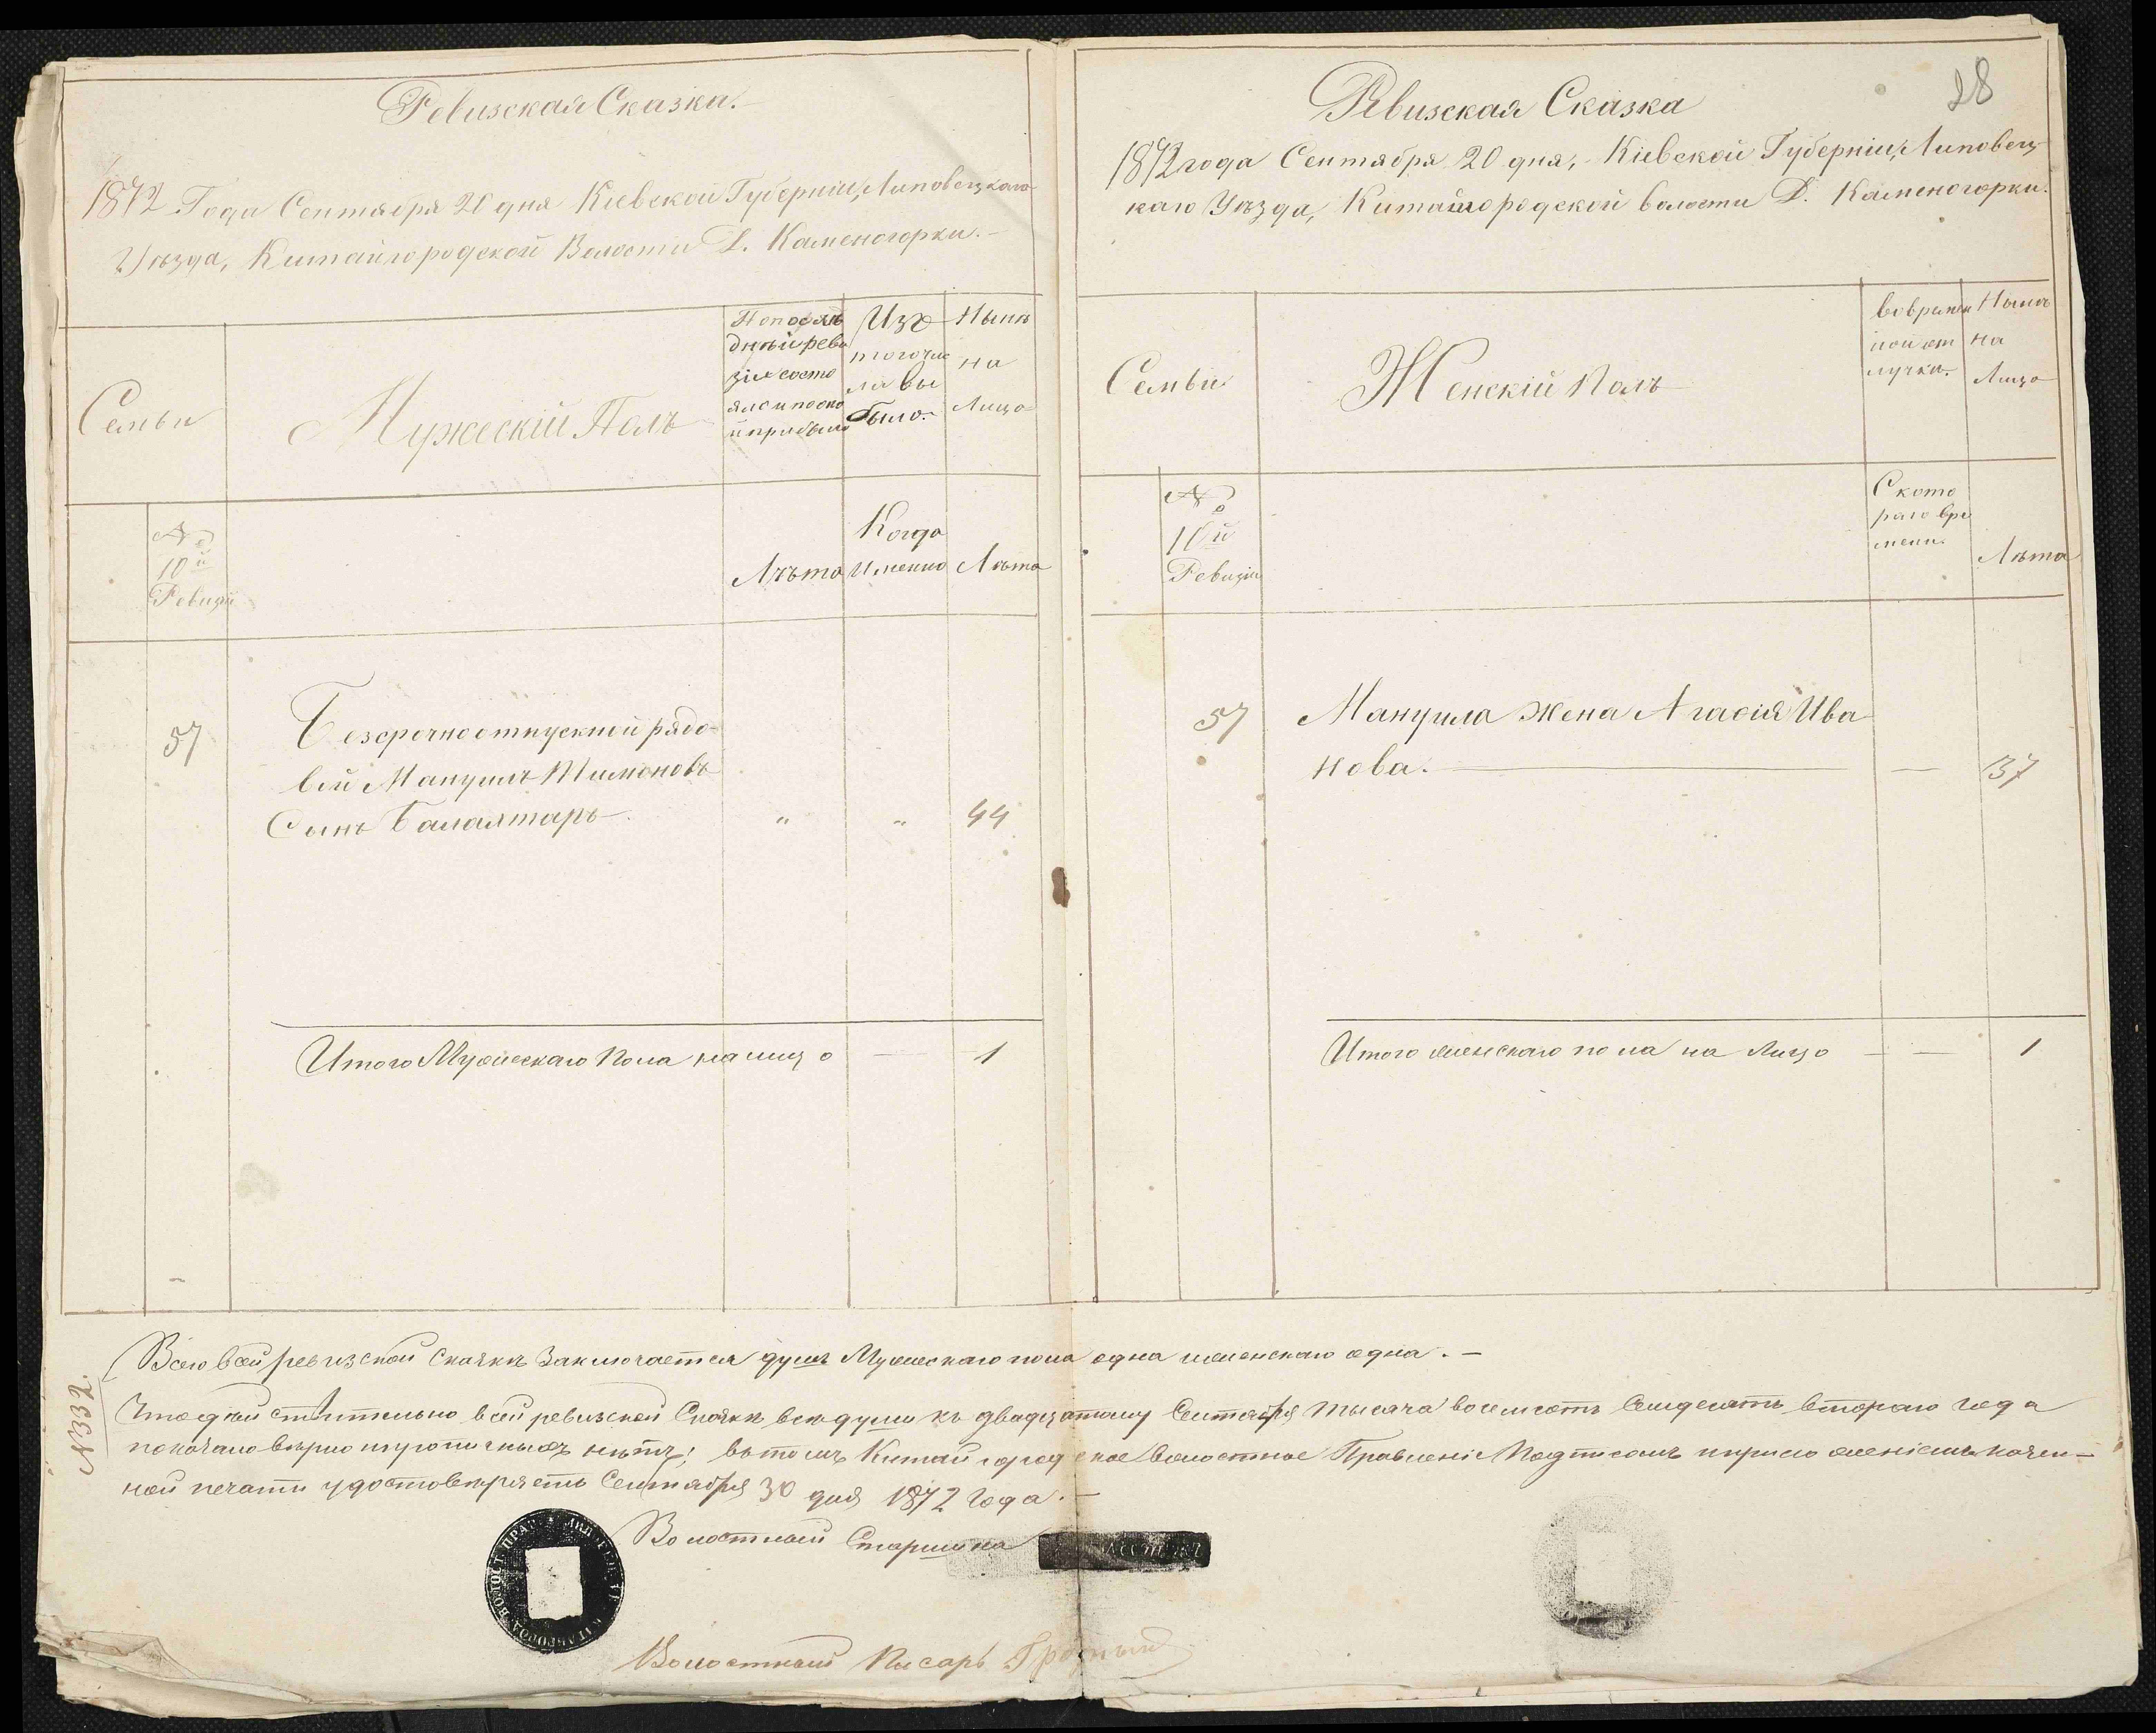 Ревизская Сказка.
1872 Года Сентября 20 дня Киевской Губерніи, Липовецкаго
Уѣзда, Китайгородской Волости Д. Каменогорки.
Семьи
Мужескій Полъ
По послѣ
дней реви
зіи состо
яло и посло
й прибыло
Изъ
того чис
ла вы
было.
Нынѣ
на
Лицо
№
10й
Ревизіи
Лѣта
Когда
Именно
Лѣта
57
Безсрочноотпускной рядо-
вій Мануилъ Тимоновъ
Сынъ Балалтарь
"
"
44
Итого Мужескаго Пола на лицо — 1
28
Ревизская Сказка
1872 года Сентября 20 дня, Кіевской Губерніи, Липовец-
каго Уѣзда, Китайгородской волости Д. Каменогорки.
Семьи
Женскій Полъ
во времен
ной от
лучки.
Нынѣ
на
Лицо
№
10й
Ревизіи
С кото
раго вре
мени.
Лѣта
57
Мануила жена Агафія Ива
нова. — — 37
Итого женскаго пола на Лицо — — 1
Всего в сей ревизской сказкѣ Заключается душъ Мужескаго пола одна и женскаго одна. —
№ 332.
Что действительно в сей ревизской Сказкѣ всѣ души къ двадцатому Сентября тысяча восемсотъ Семдесятъ втораго года
показано вѣрно и пропичныхъ нѣтъ; въ томъ Китайгородское волостное Правленіе Подписомъ и приложеніемъ казен-
ной печати удостовѣряетъ Сентября 30 дня 1872 Года. —
Волостный Старшина
Волостный Писарь Грозный